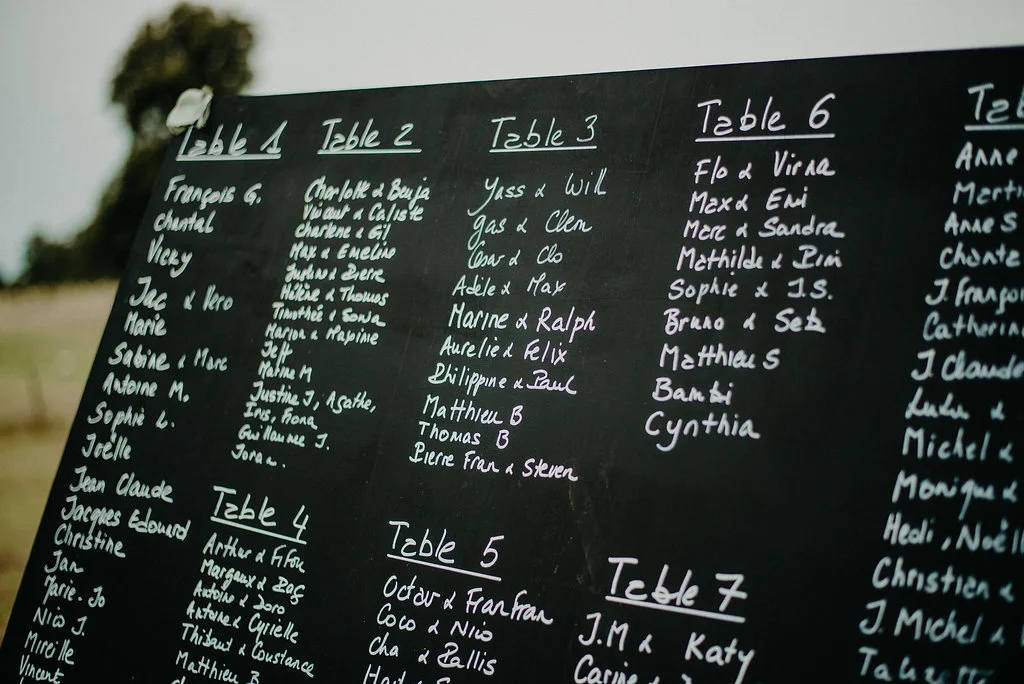 Table 1
François G.
Chantal
Vicky
Jac & Vero
Marie
Sabine & Marc
Antoine M.
Sophie L.
Joëlle
Jean Claude
Jacques Edouard
Christine
Jan
Marie-Jo
Nico J.
Mireille
Vincent
Table 2
Charlotte & Benja
Vincent & Caliste
Charlène & Gil
Max & Emeline
Hélène & Thomas
Timothée & Sonia
Marion & Maxime
Jeff
Marine M
Justine J, Agathe,
Iris, Fiona
Guillaume J.
Table 4
Arthur & Fifou
Margaux & Bag
Antoine & Doro
Antoine & Cyrielle
Thibaut & Constance
Matthieu B
Table 3
Yass & Will
Gas & Clem
César & Clo
Adèle & Max
Marine & Ralph
Aurelie & Felix
Philippine & Paul
Matthieu B
Thomas B
Pierre Fran & Steven
Table 5
Octav & FranFran
Coco & Nico
Cha & Pallis
Table 6
Flo & Virna
Max & Emi
Marc & Sandra
Mathilde & Bim
Sophie & J.S.
Bruno & Seb
Matthieu S
Bambi
Cynthia
Table 7
J.M & Katy
Carine &
Anne
Anne S
J. François
Catherine
J. Claude
Lulu &
Michel &
Monique &
Hedi, Noëll
Christien &
J. Michel &